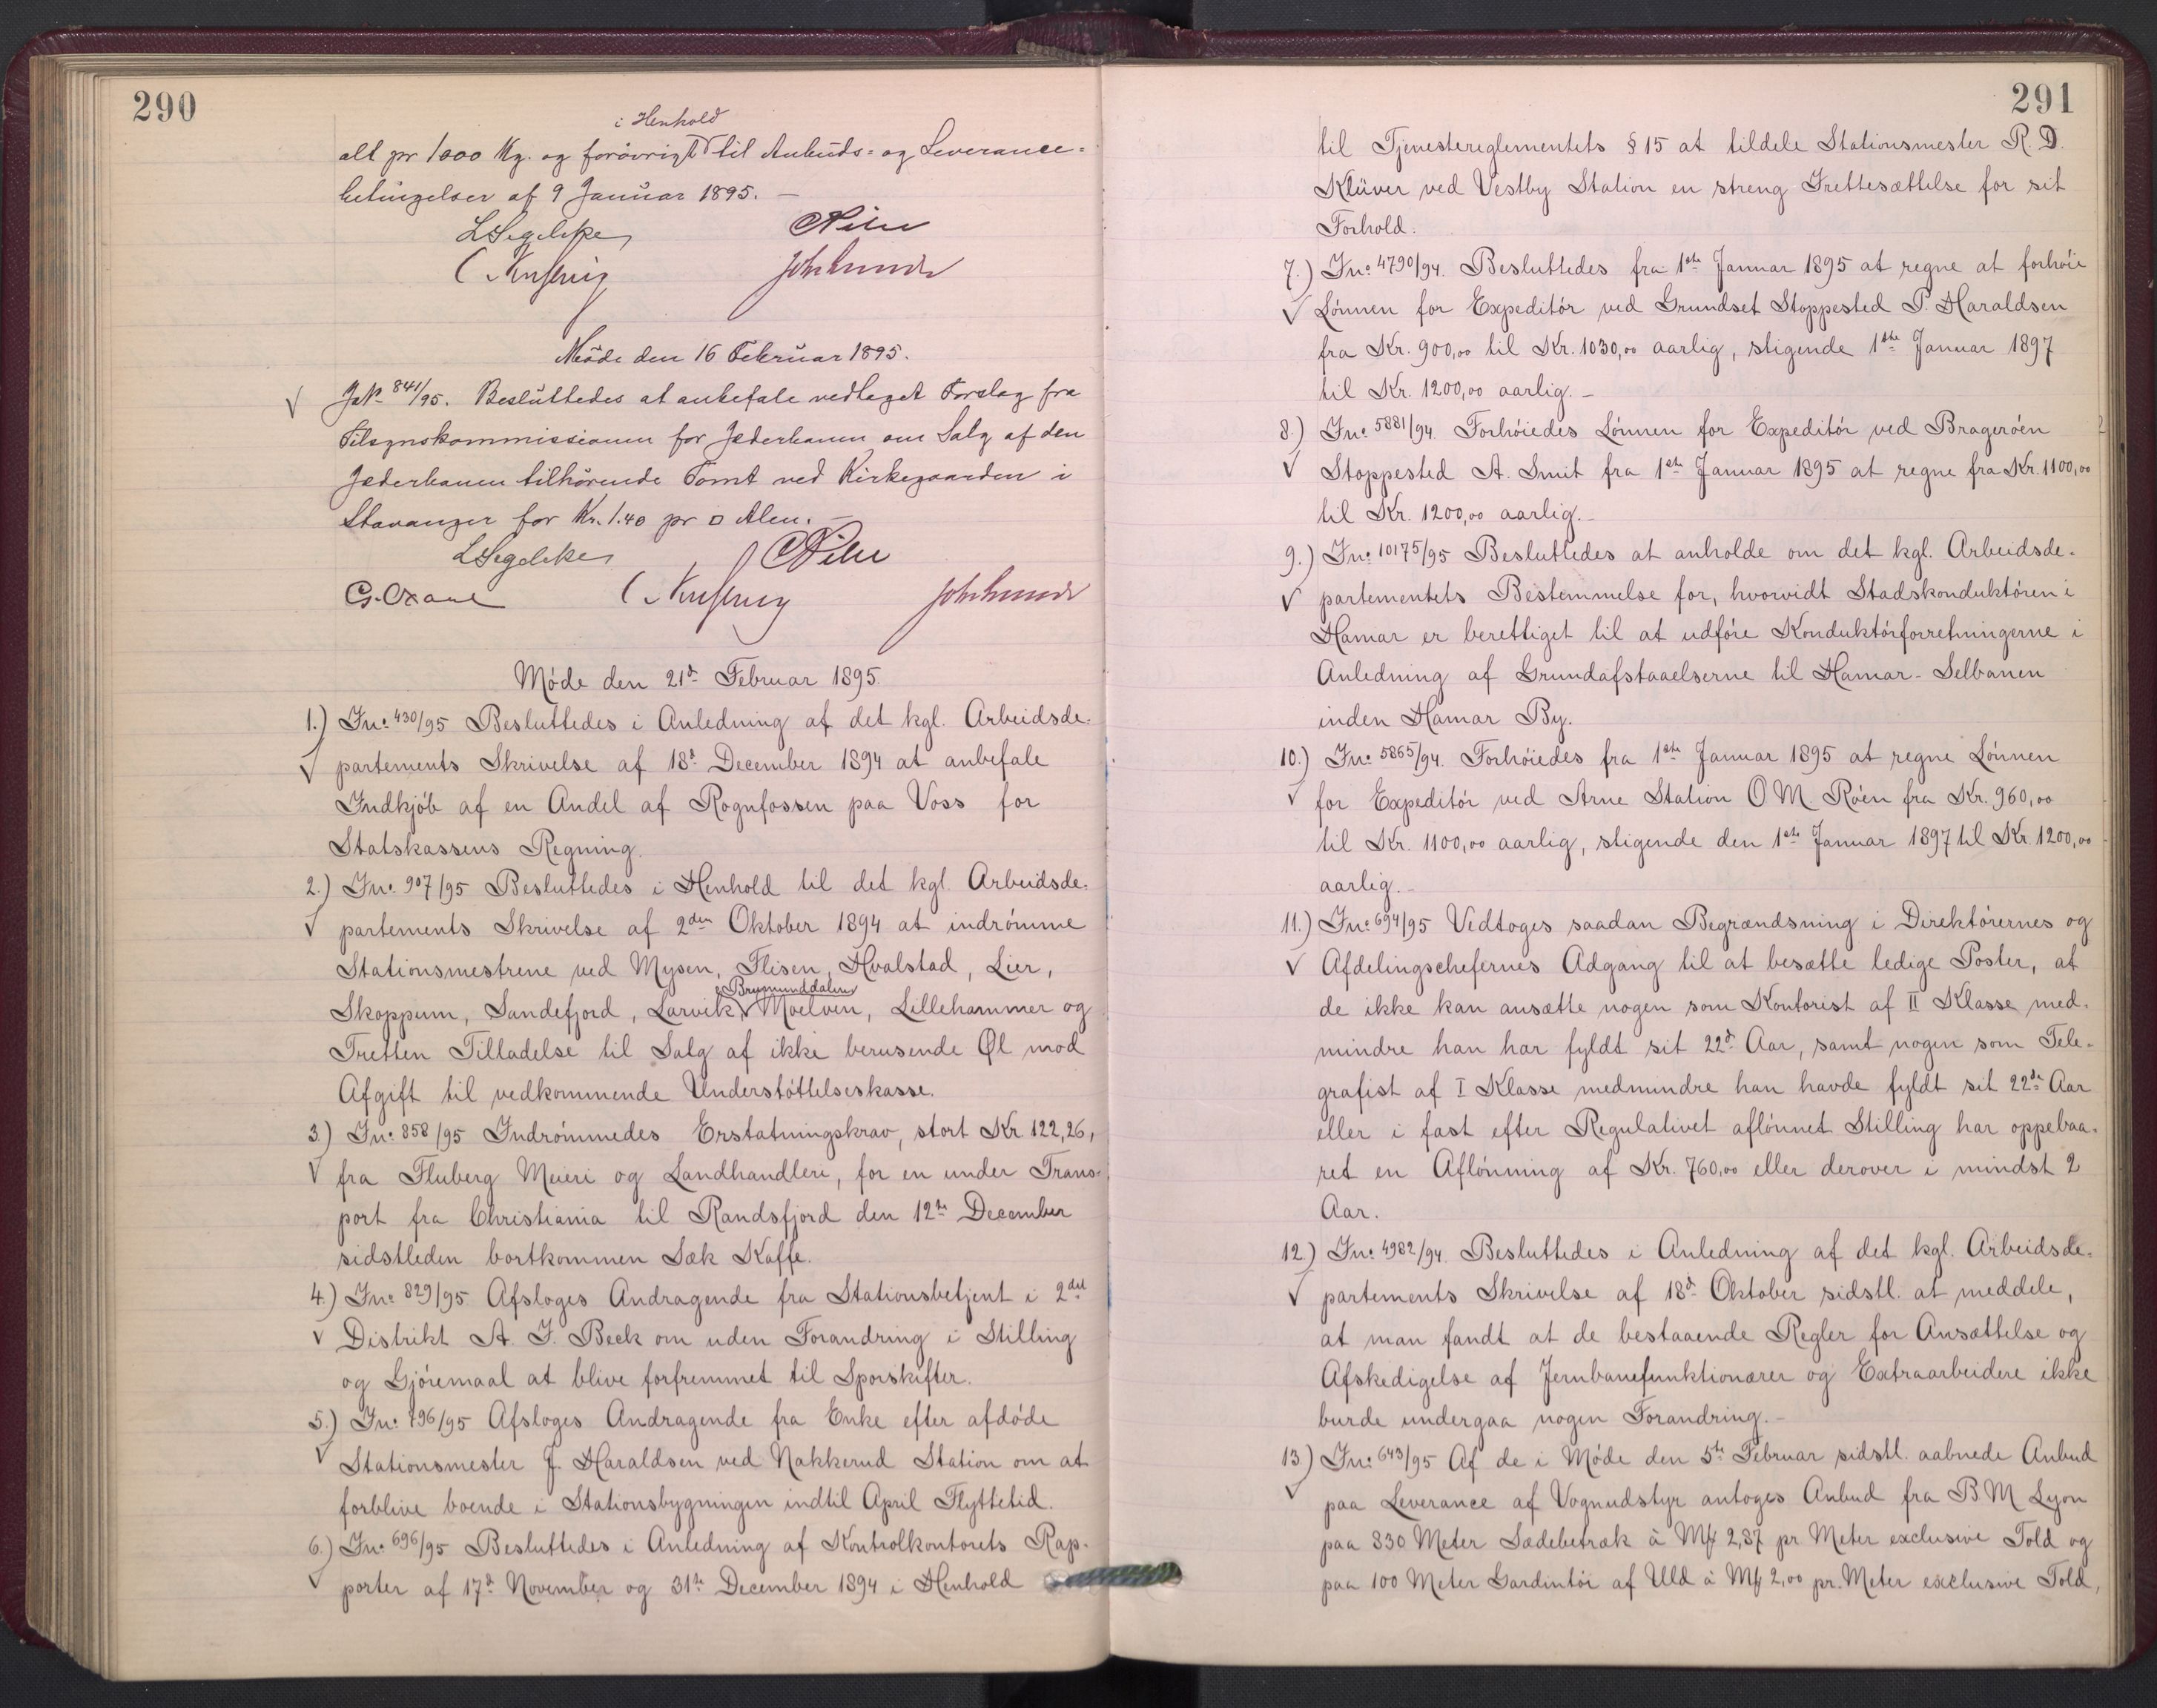 290
i Henhold
alt pr 1000 Kg. og forövrigt til Anbuds- og Leverance-
betingelser af 9 Januar 1895. —
LSegelcke
Möde den 16 Februar 1895.
√ JN° 841/95. Beslüttedes at anbefale vedlaget Forslag fra
Tilsynskommissionen for Jæderbanen om Salg af den
Jæderbanen tilhörende Tomt ved Kirkegaarden i
Stavanger for Kr. 1.40 pr □ Alen. —
LSegelcke
Møde den 21d Februar 1895.
1.) Jn: 430/95 Besluttedes i Anledning af det kgl. Arbeidsde-
√ partements Skrivelse af 18d December 1894 at anbefale
Indkjøb af en Andel af Rognfossen paa Voss for
Statskassens Regning.
2.) Jn: 907/95 Besluttedes i Henhold til det kgl. Arbeidsde-
√ partements Skrivelse af 2den Oktober 1894 at indrømme
Stationsmestrene ved Mysen, Flisen, Hvalstad, Lier,
Brymunddalen
Skoppum, Sandefjord, Larvik, Moelven, Lillehammer og
Tretten Tilladelse til Salg af ikke berusende Øl mod
Afgift til vedkommende Understøttelseskasse.
3.) Jn: 858/95 Indrømmedes Erstatningskrav, stort Kr 122,26,
√ fra Fluberg Meieri og Landhandleri, for en under Trans-
port fra Christiania til Randsfjord den 12te December
sidstleden bortkommen Sæk Kaffe.
4.) Jn: 829/95 Afsloges Andragende fra Stationsbetjent i 2det
√ Distrikt A. J. Beck om uden Forandring i Stilling
og Gjøremaal at blive forfremmet til Sporskifter.
5.) Jn: 796/95 Afsloges Andragende fra Enke efter afdøde
√ Stationsmester J. Haraldsen ved Nakkerud Station om at
forblive boende i Stationsbygningen indtil April Flyttetid.
6.) Jn: 696/95 Besluttedes i Anledning af Kontrolkontorets Rap-
√ porter af 17d November og 31te December 1894 i Henhold
291
til Tjenestereglementets § 15 at tildele Stationsmester R. D.
Klüver ved Vestby Station en streng Irettesættelse for sit
Forhold.
7.) Jn: 4790/94. Besluttedes fra 1ste Januar 1895 at regne at forhøie
√ Lønnen for Expeditør ved Grundset Stoppested P. Haraldsen
fra Kr. 900,00 til Kr. 1030,00 aarlig, stigende 1ste Januar 1897
til Kr. 1200,00 aarlig. —
8.) Jn: 5881/94. Forhøiedes Lønnen for Expeditør ved Bragerøen
√ Stoppested A. Smit fra 1ste Januar 1895 at regne fra Kr. 1100,00
til Kr. 1200,00 aarlig. —
9.) Jn: 10175/95 Besluttedes at anholde om det kgl. Arbeidsde-
√ partementets Bestemmelse for, hvorvidt Stadskonduktøren i
Hamar er berettiget til at udføre Konduktørforretningerne i
Anledning af Grundafstaaelserne til Hamar - Selbanen
inden Hamar By.
10.) Jn: 5865/94. Forhøiedes fra 1ste Januar 1895 at regne Lønnen
√ for Expeditør ved Arne Station O M Røen fra Kr. 960,00
til Kr. 1100,00 aarlig, stigende den 1ste Januar 1897 til Kr. 1200,00
aarlig. —
11.) Jn: 694/95 Vedtoges saadan Begrændsning i Direktørernes og
√ Afdelingschefernes Adgang til at besætte ledige Poster, at
de ikke kan ansætte nogen som Kontorist af II Klasse med-
mindre han har fyldt sit 22d Aar, samt nogen som Tele-
grafist af I Klasse medmindre han havde fyldt sit 22de Aar
eller i fast efter Regulativet aflønnet Stilling har oppebaa-
ret en Aflønning af Kr. 760,00 eller derover i mindst 2
Aar.
12.) Jn: 4982/94. Besluttedes i Anledning af det kgl. Arbeidsde-
√ partements Skrivelse af 18d Oktober sidstl. at meddele,
at man fandt at de bestaaende Regler for Ansættelse og
Afskedigelse af Jernbanefunktionærer og Extraarbeidere ikke
burde undergaa nogen Forandring. —
13.) Jn: 643/95 Af de i Møde den 5te Februar sidstl. aabnede Anbud
√ paa Leverance af Vognudstyr antoges Anbud fra B M Lyon
paa 330 Meter Sædebetræk à Mk 2,87 pr Meter exclusive Told og
paa 100 Meter Gardintøi af Uld à Mk 2,00 pr. Meter exclusive Told,